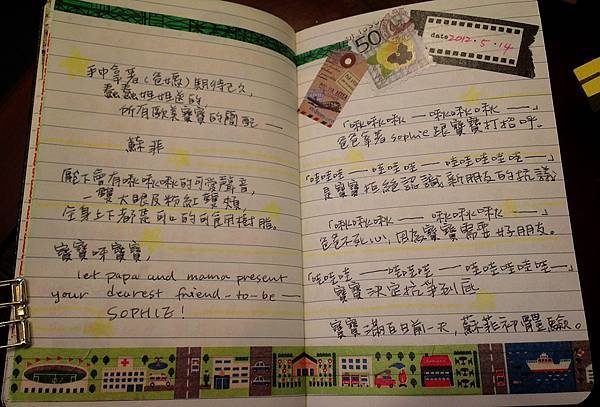 手中拿著(爸媽)期待已久，
蠢蠢姐姐送的
所有歐美寶寶的闊配——
蘇菲
腳下會有啾啾啾的可愛聲音，
一雙大眼及粉紅雙頰
全身上下都是可口的可食用樹脂。
寶寶呀寶寶，
let papa and mama present
your dearest friend-to-be——
SOPHIE!
date 2012.5.14
50
「啾啾啾——啾啾啾——」
爸爸拿著sophie跟寶寶打招呼。
「哇哇哇——哇哇哇——哇哇哇哇哇——」
是寶寶拒絕認識新朋友的抗議
「啾啾啾——啾啾啾——」
爸爸不死心，因為寶寶需要好朋友。
「哇哇哇——哇哇哇——哇哇哇哇哇——」
寶寶決定抗爭到底
寶寶滿百日前一天，蘇菲初體驗。